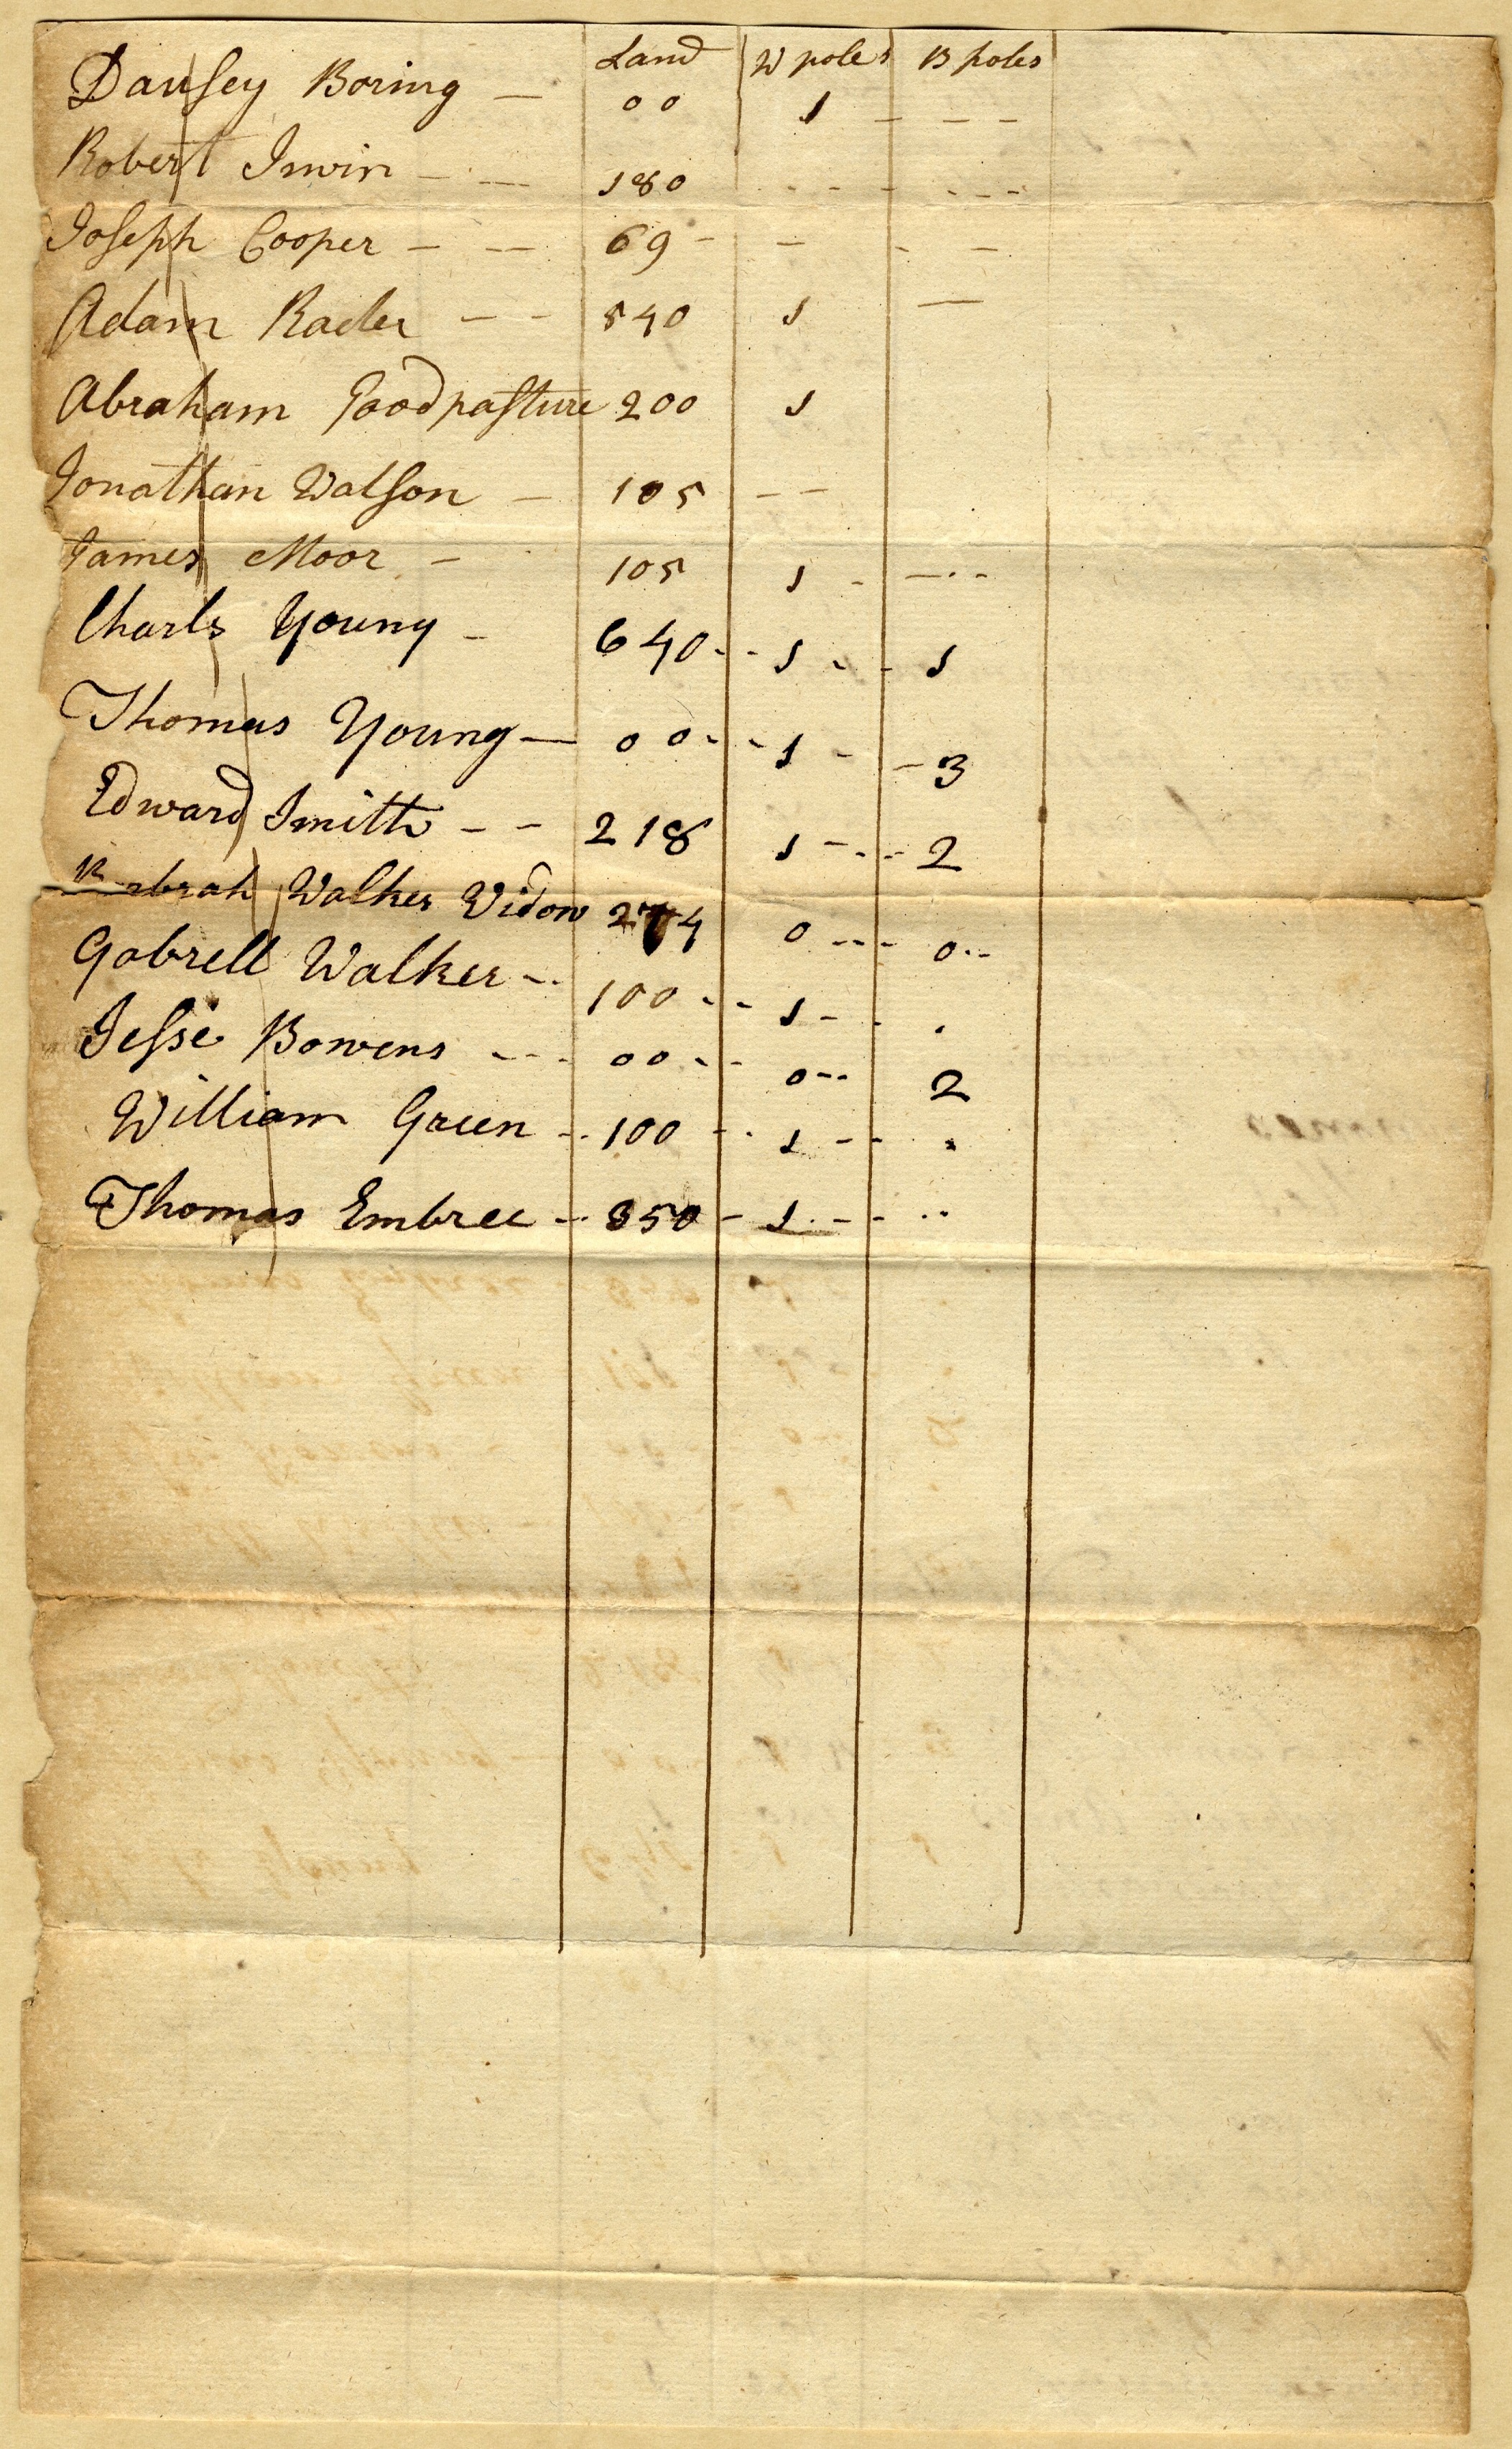 Land W poles B poles
Dausey Boring — 00 1 - - - -
Robert Irwin - — 180 - - - - - - -
Joseph Cooper - — 69 - - - -
Adam Rader - - 540 1 —
Abraham Goodpasture 200 1
Jonathan Watson - 105 - -
James Moor - 105 1 - — . -
Charls Young - 640 - - 1 - - 1
Thomas Young — 00 - - 1 - - 3
Edward Smith - - 218 1 - . - - 2
Walker Widow 274 0 - - - 0 . -
Gabrell Walker - . 100 - - 1 - - .
Jesse Bowens - - - 00 - - 0 - - 2
William Green - . 100 - . 1 - - .
Thomas Embree - . 350 - 1 . - - . .